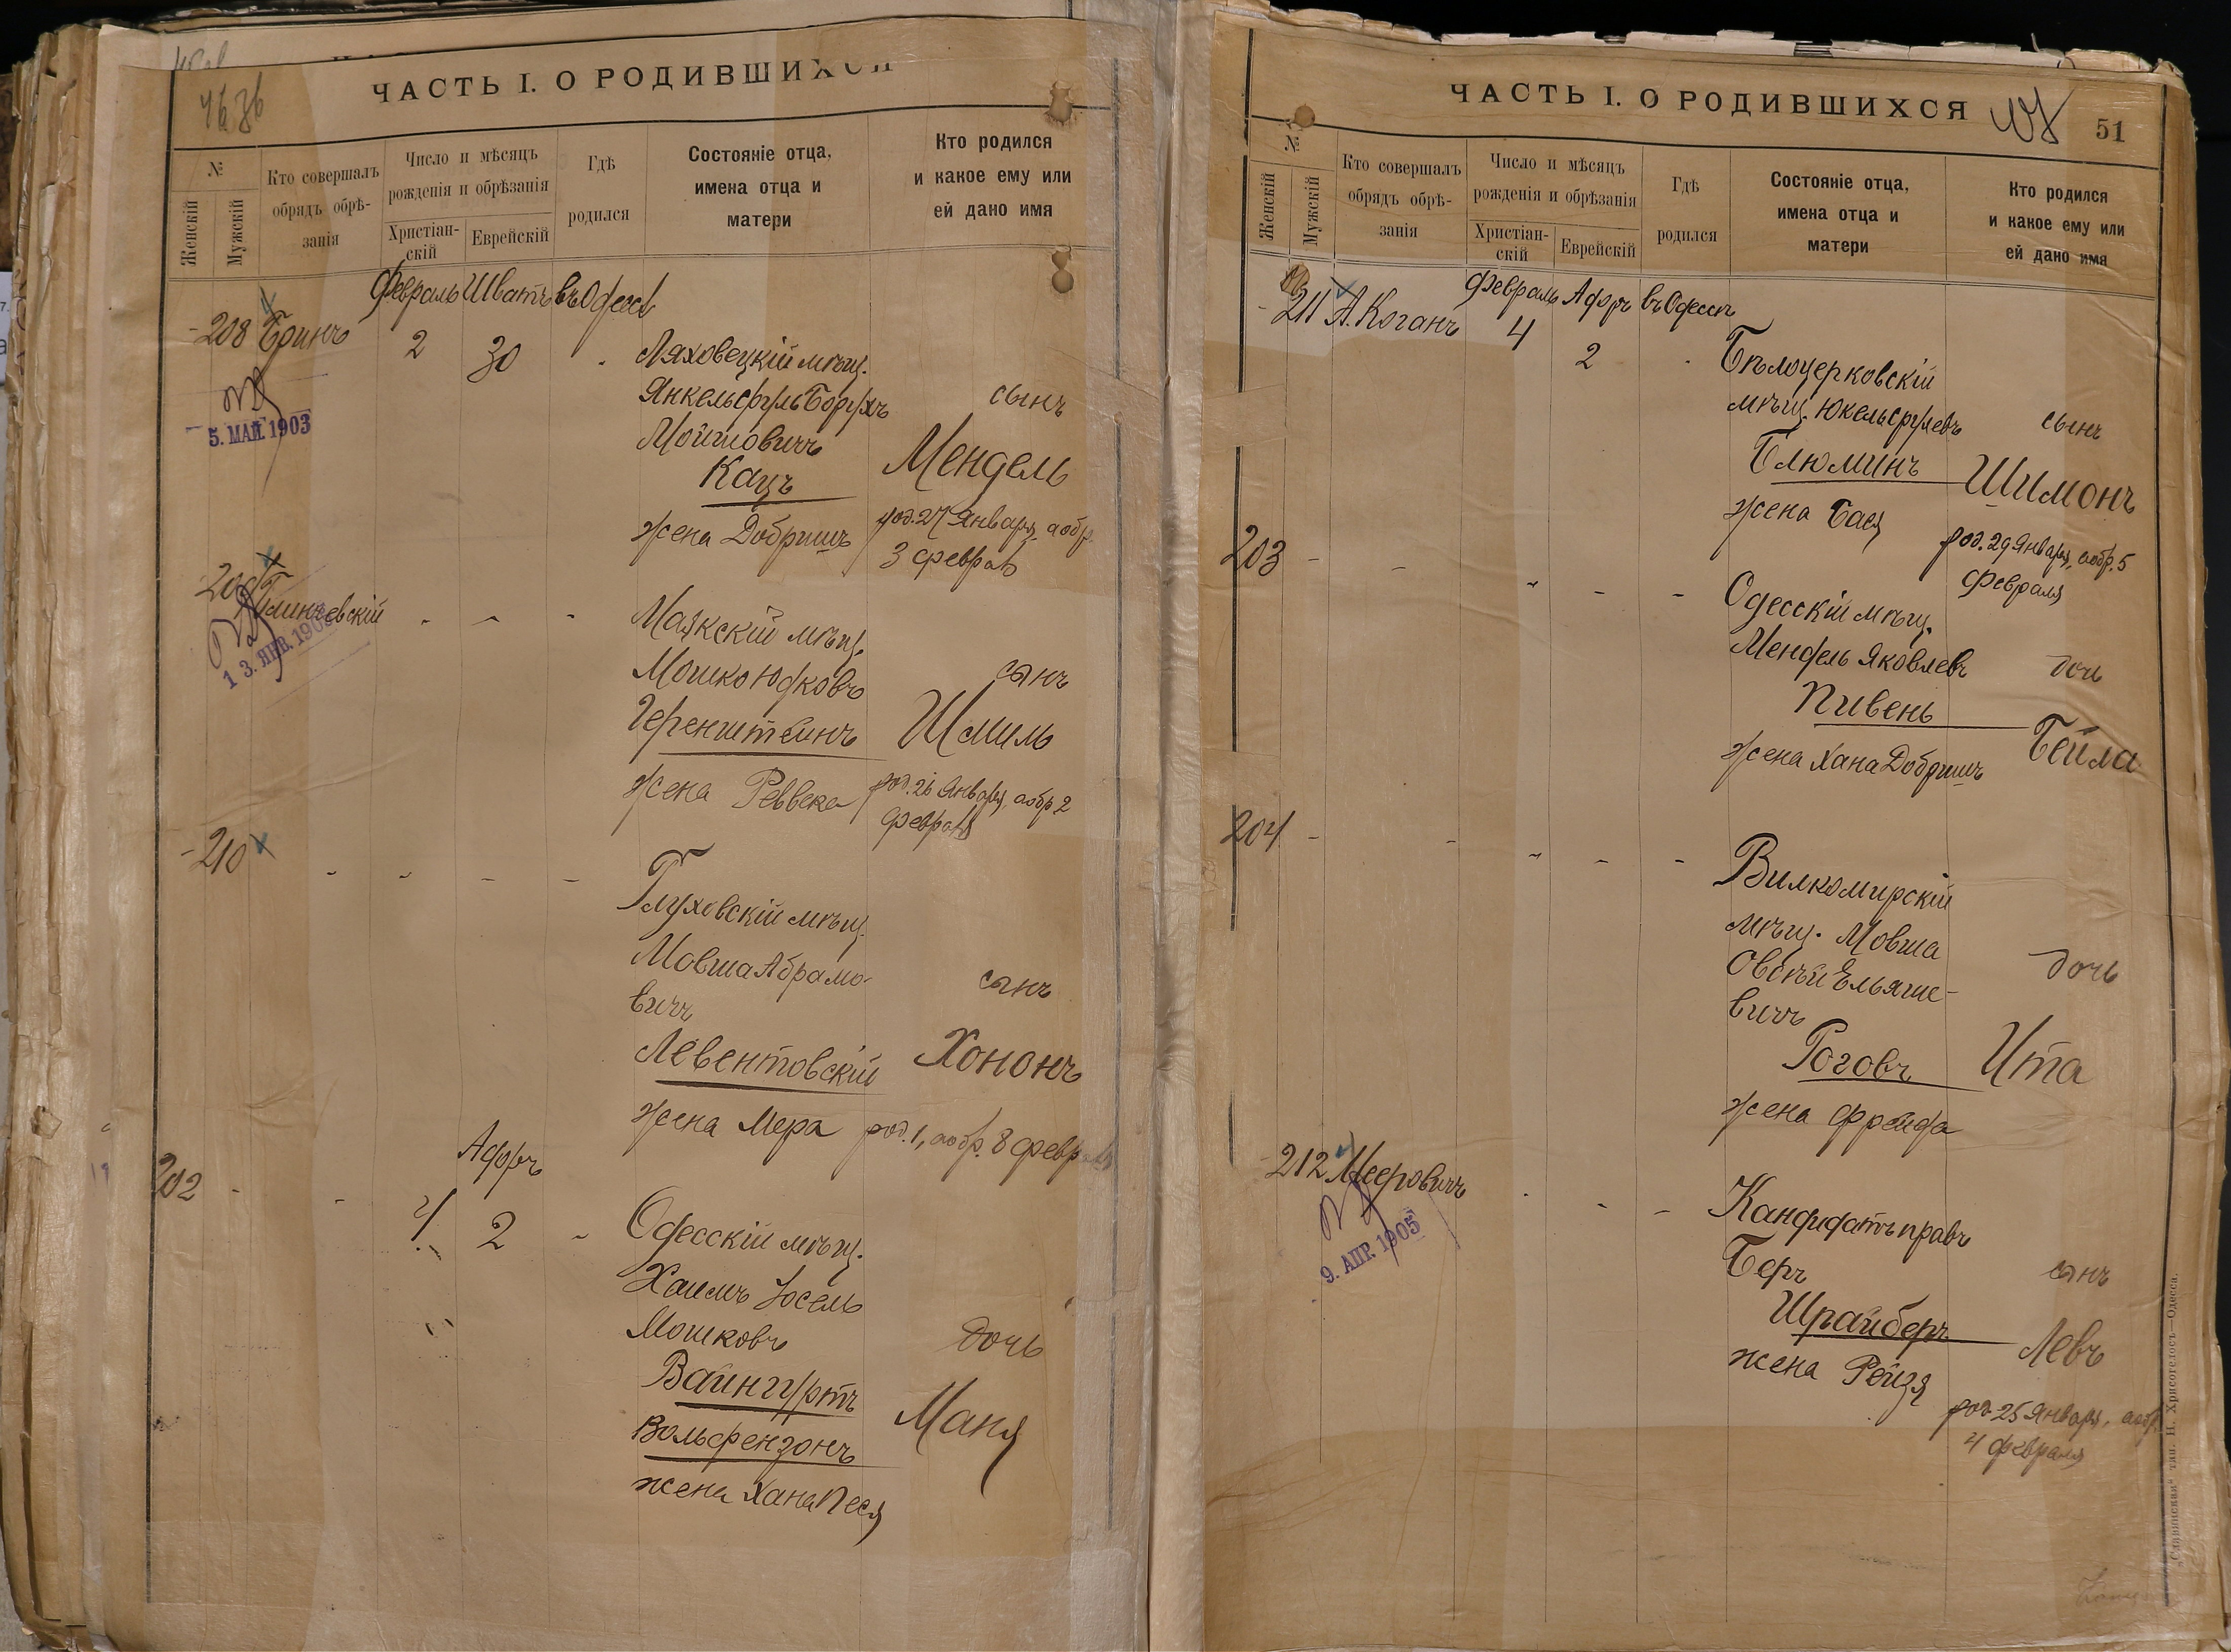 ЧАСТЬ I. О РОДИВШИХСЯ
№
Женскій
Мужскій
Кто совершалъ
обрядъ обрѣ-
занія
Число и мѣсяцъ
рожденія и обрѣзанія
Христіан-
скій
Еврейскій
Гдѣ
родился
Состояніе отца,
имена отца и
матери
Кто родился
и какое ему или
ей дано имя
Февраль Шватъ въ Одессѣ
208 Бринъ 2 30
Ляховецкій мѣщ.
Янкель Сруль Борухъ
Мошковичъ
Кацъ
жена Добришъ
сынъ
Мендель
род. 27 Января, а обр.
3 февраля
5. МАЙ. 1903
209
13. ЯНВ. 190
Маякскій мѣщ.
Мошко Юдковъ
Геренштейнъ
жена Ревека
сынъ
Шмиль
род. 26 Января, а обр. 2
февраля
210
Глуховскій мѣщ.
Мовша Абрамо-
вичъ
Левентовскій
жена Мера
сынъ
Хононъ
род. 1, а обр. 8 февраля
Адоръ
202 4 2
Одесскій мѣщ.
Хаимъ Іосель
Мошковъ
Вайнгуртъ
Вольфензонъ
жена Хана Песя
дочь
Маня
ЧАСТЬ I. О РОДИВШИХСЯ
51
№
Женскій
Мужскій
Кто совершалъ
обрядъ обрѣ-
занія
Число и мѣсяцъ
рожденія и обрѣзанія
Христіан-
скій
Еврейскій
Гдѣ
родился
Состояніе отца,
имена отца и
матери
Кто родился
и какое ему или
ей дано имя
Февраль Адоръ въ Одессѣ
211 А. Коганъ 4 2
Бѣлоцерковскій
мѣщ. Юкель Срулевъ
Блюминъ
жена Бася
сынъ
Шимонъ
род. 29 Января, а обр. 5
февраля
203
Одесскій мѣщ.
Мендель Яковлевъ
Пивень
жена Хана Добришъ
дочь
Бейла
204
Вилкомирскій
мѣщ. Мовша
Овсѣй Ельяше-
вичъ
Роговъ
жена Фрейда
дочь
Ита
212 Мееровичъ
9. АПР. 1905
Кандидатъ правъ
Беръ
Шрайберъ
жена Рейзя
сынъ
Левъ
род. 25 Января, а обр.
4 февраля
„Славянская“ тип. Н. Хрисогелосъ—Одесса.